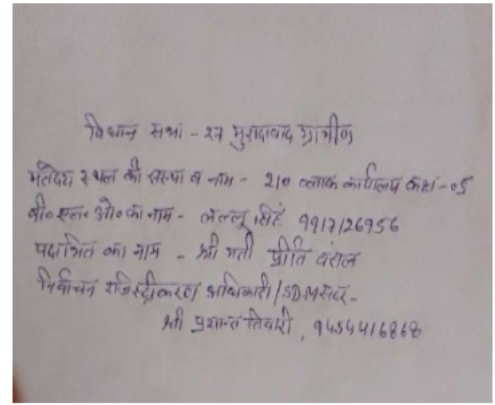 विधान सभा - २७ मुरादाबाद ग्रामीण
मतदेय स्थल की संख्या व नाम - 210 ब्लाक कार्यालय कक्ष - ०5
बी० एल० ओ० का नाम - लल्लू सिंह 9917126956
पदाभित का नाम - श्री मती प्रीति
निर्वाचन रजिस्ट्रीकरण अधिकारी / SDM सदर -
श्री प्रशान्त तिवारी, 9454416868